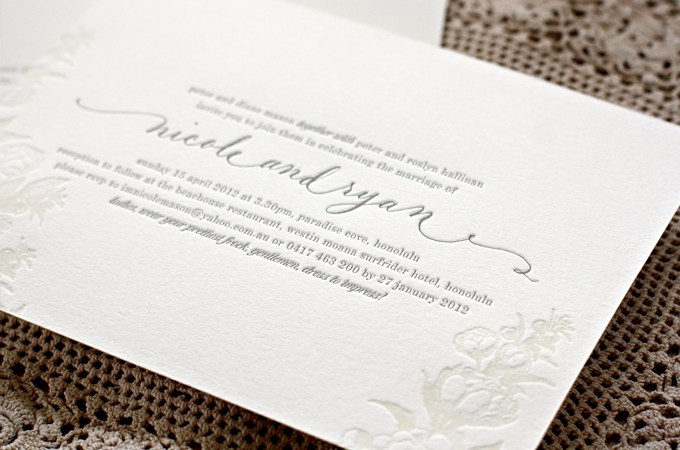 peter and diane mason together with peter and roslyn hallinan
invite you to join them in celebrating the marriage of
nicole and ryan
sunday 15 april 2012 at 3.30pm, paradise cove, honolulu
reception to follow at the beachouse restaurant, westin moana surfrider hotel, honolulu
please rsvp to imnicolemason@yahoo.com.au or 0417 463 200 by 27 january 2012
ladies, wear your prettiest frock, gentlemen, dress to impress!